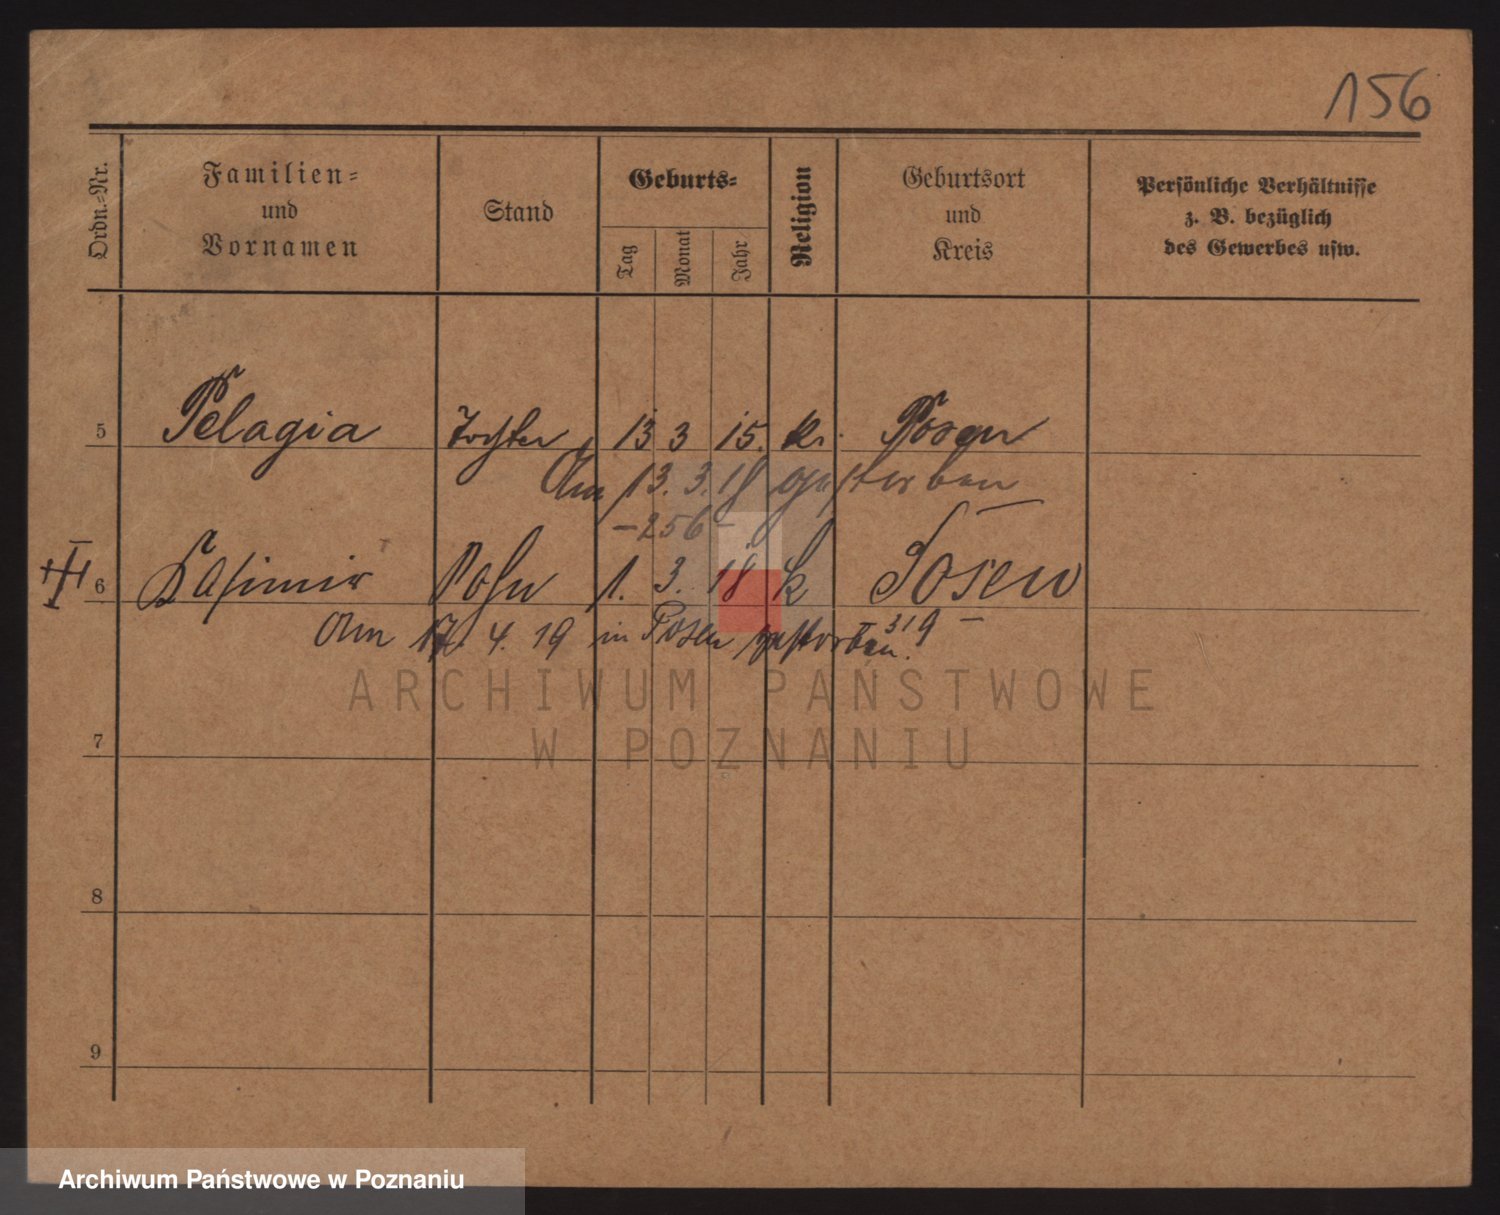 156
Ordn.-Nr.
Familien-
und
Vornamen
Stand
Geburts-
Tag
Monat
Jahr
Religion
Geburtsort
und
Kreis
Persönliche Verhältnisse
z. B. bezüglich
des Gewerbes usw.
5 Pelagia Tochter 13 3 15. k. Posen
Am 13. 3. 18 gestorben
- 256 -
6 Kasimir Sohn 1. 3. 18 k Posen
Am 17. 4. 19 in Posen gestorben. 319 -
7
8
9
ARCHIWUM PAŃSTWOWE
W POZNANIU
Archiwum Państwowe w Poznaniu